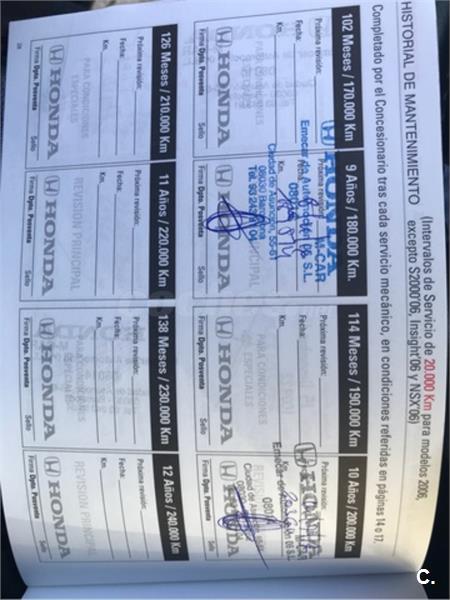 HISTORIAL DE MANTENIMIENTO
(Intervalos de Servicio de 20.000 Km para modelos 2006,
excepto S2000'06, Insight'06 y NSX'06)
Completado por el Concesionario tras cada servicio mecánico, en condiciones referidas en páginas 14 o 17.
102 Meses / 170.000 Km
Próxima revisión:
Fecha:
Km.
PARA CONDICIONES
HONDA
Firma Dpto. Posventa
Sello
9 Años / 180.000 Km.
HONDA
M-CAR
Próxima revisión:
Emocar de Automoción 06 S.L.
Km.
Ciudad de Asunción, 55-61
08030 Barcelona
Tel. 93
HONDA
Firma Dpto. Posventa
Sello
114 Meses / 190.000 Km
Próxima revisión:
Fecha:
Km.
PARA CONDICIONES
ESPECIALES
HONDA
Firma Dpto. Posventa
Sello
10 Años / 200.000 Km
HONDA
Próxima revisión:
Km.
Emocar de
06 S.L.
Ciudad de
HONDA
Firma Dpto. Posventa
Sello
126 Meses / 210.000 Km
Próxima revisión:
Fecha:
Km.
PARA CONDICIONES
ESPECIALES
HONDA
Firma Dpto. Posventa
Sello
11 Años / 220.000 Km
Próxima revisión:
Fecha:
Km.
REVISIÓN PRINCIPAL
HONDA
Firma Dpto. Posventa
Sello
138 Meses / 230.000 Km
Próxima revisión:
Fecha:
Km.
PARA CONDICIONES
ESPECIALES
HONDA
Firma Dpto. Posventa
Sello
12 Años / 240.000 Km
Próxima revisión:
Fecha:
Km.
REVISIÓN PRINCIPAL
HONDA
Firma Dpto. Posventa
Sello
28
C.